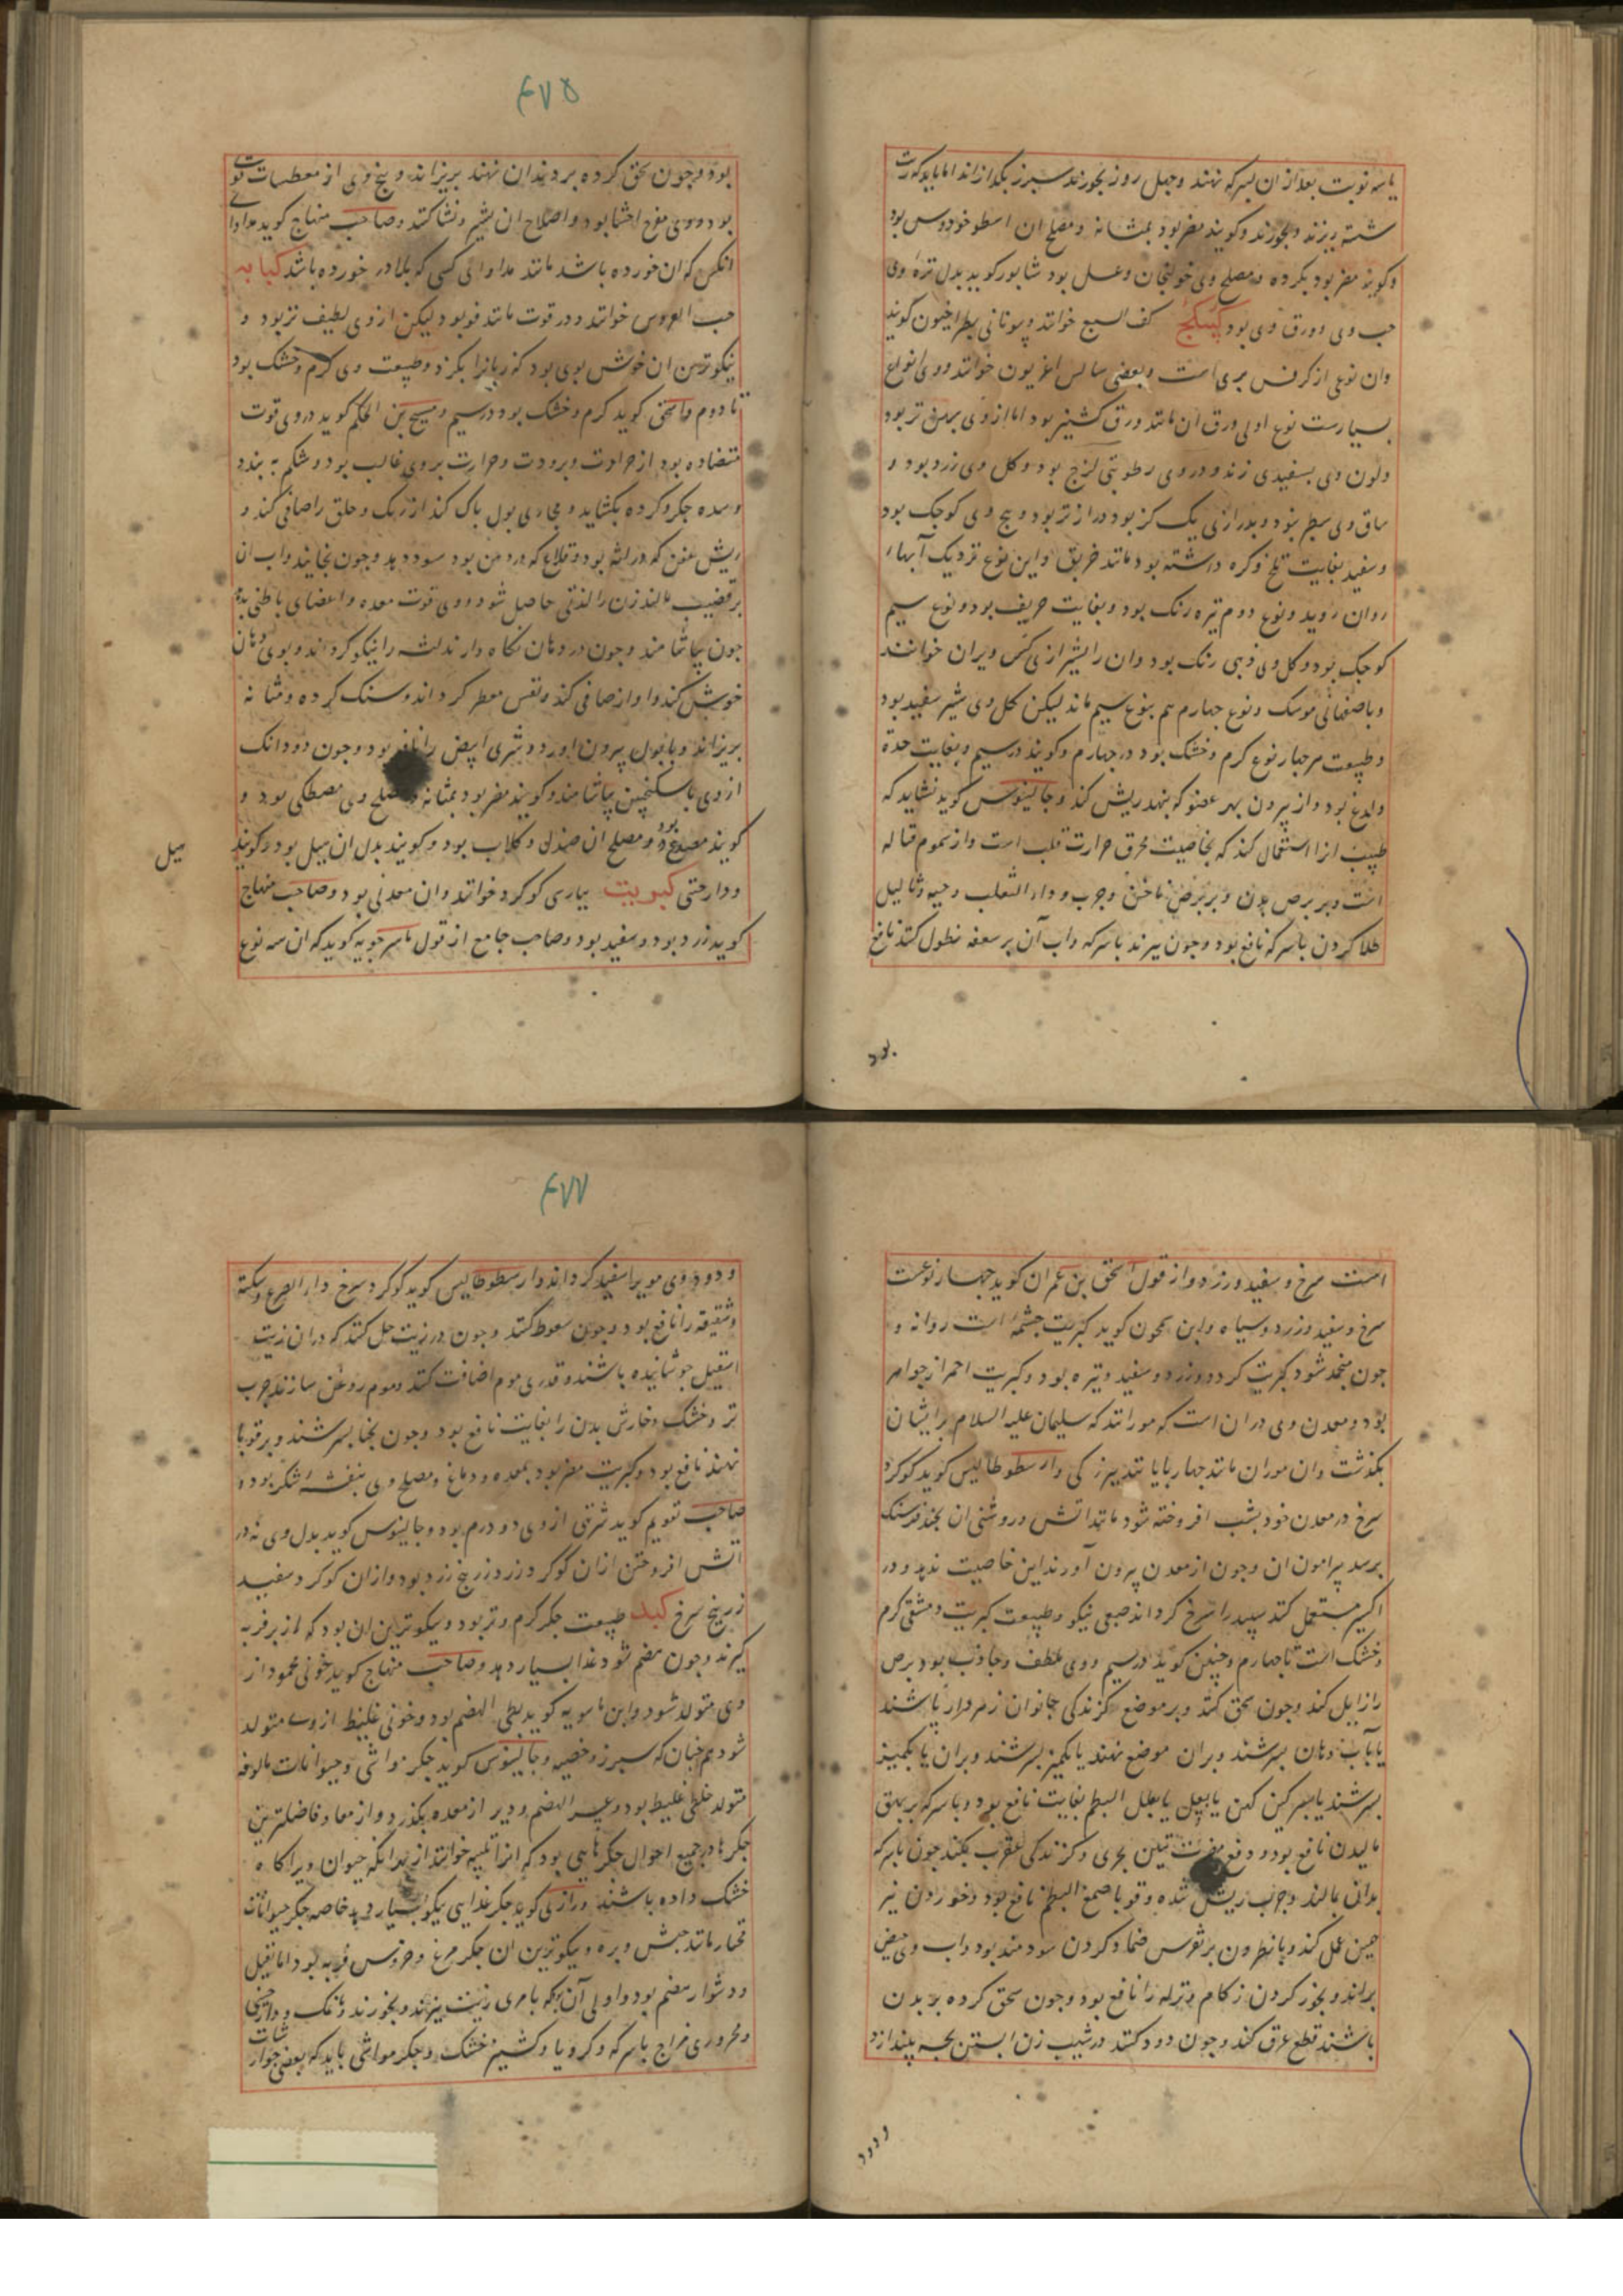 یا سه نوبت بعد از ان بسرکه نهند و چهل روز بخورند سپرز بکدازاند اما باید که
شسته پزند و بخورند و کویند مضر بود بمثانه و مصلح ان اسطوخودوس بود
و کویند مضر بود بکرده و مصلح وی خولنجان و عسل بود شابور کوید بدل تره وی
حب وی و ورق وی بود کبیکج کف السبع خوانند و یونانی بطراخیون کویند
وان نوعی از کرفس بری است و بعضی سالس اغریون خوانند و وی انواع
بسیارست نوع اولی ورق ان مانند ورق کشنیز بود اما از وی پهن تر بود
ولون وی بسفیدی زند و در وی رطوبتی لزج بود و کل وی زرد بود و
ساق وی سطبر نبود و بدرازی یک کز بود دراز تر بود و بیخ وی کوچک بود
و سفید بغایت تلخ و کره داشته بود مانند خربق و این نوع نزدیک آبهاء
روان روید و نوع دوم تیره رنک بود و بغایت حریف بود و نوع سیم
کوچک بود و کل وی ذهبی رنک بود وان را بشیرازی کس ویران خوانند
و باصفهانی موسک و نوع چهارم هم بنوع سیم ماند لیکن کل وی شیر سفید بود
و طبیعت هر چهار نوع کرم و خشک بود در چهارم و کویند در سیم و بغایت حدة
ولدغ بود و از بیرون بهر عضو که بنهند ریش کند و جالینوس کوید نشاید که
طبیب انرا استعمال کند که بخاصیت محرق حرارت قلب است و از سموم قتاله
است و بر برص بدن و بر برص ناخن و جرب و داء الثعلب و حیه و ثالیل
طلا کردن با سرکه نافع بود و چون بپزند با سرکه و اب آن بر سعفه نطول کنند نافع
بود
۴۷۵
بود و چون سحق کرده بر دندان نهند بریزاند و بیخ وی از معطسات قوی
بود و وی مقرح احشا بود و اصلاح ان بشیر و نشا کنند و صاحب منهاج کوید مداوای
انکس که ان خورده باشد مانند مداوای کسی که بلادر خورده باشد کبابه
حب العروس خوانند و در قوت مانند فو بود لیکن از وی لطیف تر بود و
نیکوترین ان خوش بوی بود که زبانرا بکزد و طبیعت وی کرم و خشک بود
تا دوم و اسحق کوید کرم و خشک بود در سیم و مسیح بن الحکم کوید در وی قوت
متضاده بود از حرارت و برودت و حرارت بر وی غالب بود و شکم به بندد
و سده جکر و کرده بکشاید و مجاری بول پاک کند از ریک و حلق را صافی کند و
ریش عفن که در لثه بود و قلاع که در دهن بود سود دهد و چون بخایند و اب ان
بر قضیب مالند زن را لذتی حاصل شود و وی قوت معده و اعضای باطنی بدهد
چون بیاشامند و چون در دهان نکاه دارند لثه را نیکو کرداند و بوی دهان
خوش کند و اواز صافی کند و نفس معطر کرداند و سنک کرده و مثانه
بریزاند و با بول بیرون اورد و شری ابیض را نافع بود و چون دو دانک
از وی با سکنجبین بیاشامند و کویند مضر بود بمثانه و مصلح وی مصطکی بود و
کویند مصدع بود و مصلح ان صندل و کلاب بود و کویند بدل ان هیل بود و کویند
هیل
و دارچینی کبریت بپارسی کوکرد خوانند وان معدنی بود و صاحب منهاج
کوید زرد بود و سفید بود و صاحب جامع از قول ماسرجویه کوید که ان سه نوع
است سرخ و سفید و زرد و از قول اسحق بن عمران کوید چهار نوعست
سرخ و سفید و زرد و سیاه و ابن سمحون کوید کبریت چشمه است روانه و
چون منجمد شود کبریت کردد و زرد و سفید و تیره بود و کبریت احمر از جواهر
بود و معدن وی در ان است که مورانند که سلیمان علیه السلام بر ایشان
بکذشت وان موران مانند چهارپایانند ببزرکی و ارسطوطالیس کوید کوکرد
سرخ در معدن خود بشب افروخته شود مانند آتش و روشنی ان بچند فرسنک
برسد پیرامون ان و چون از معدن بیرون آورند این خاصیت ندهد و در
اکسیر مستعمل کنند سپید را سرخ کرداند صبغی نیکو و طبیعت کبریت دمشقی کرم
و خشک است تا چهارم و حنین کوید در سیم و وی ملطف و جاذب بود و برص
را زایل کند و چون سحق کنند و بر موضع کزندکی جانوران زهردار پاشند
یا بآب دهان بسرشند و بران موضع نهند یا بکمیز بسرشند و بران یا بکمیز
بسرشند یا بسرکین کهن یا بعسل یا بعلک البطم بغایت نافع بود و با سرکه بر بهق
مالیدن نافع بود و دفع مضرت تنین بحری و کزندکی عقرب بکند چون با سرکه
بدان بمالند و جرب ریش شده و قوبا صمغ البطم نافع بود و خوردن نیز
همین عمل کند و با نطرون بر نقرس ضماد کردن سودمند بود و اب وی حیض
براند و بخور کردن زکام و نزله را نافع بود و چون سحق کرده بر بدن
پاشند قطع عرق کند و چون دود کنند در شیب زن ابستن بچه بیندازد
و دود
۴۷۷
و دود وی مویرا سفید کرداند و ارسطوطالیس کوید کوکرد سرخ داء الصرع و سکته
و شقیقه را نافع بود و چون سعوط کنند و چون در زیت حل کنند که دران زیت
اسقیل جوشانیده باشند و قدری موم اضافت کنند و موم روغن سازند جرب
تر و خشک و خارش بدن را بغایت نافع بود و چون بحنا بسرشند و بر قوبا
نهند نافع بود و کبریت مضر بود بمعده و دماغ و مصلح وی بنفشه و شکر بود و
صاحب تقویم کوید شربتی از وی دو درم بود و جالینوس کوید بدل وی نه در
آتش افروختن ازان کوکرد زرد زرنیخ زرد بود و ازان کوکرد سفید
زرنیخ سرخ کبد طبیعت جکر کرم و تر بود و نیکوترین ان بود که از بز فربه
کیرند و چون هضم شود غذا بسیار دهد و صاحب منهاج کوید خونی محمود از
وی متولد شود و ابن ماسویه کوید بطی الهضم بود و خونی غلیظ از وی متولد
شود همچنان که سپرز و خصیه و جالینوس کوید جکر مواشی و حیوانات مالوفه
متولد خلطی غلیظ بود و عسر الهضم و دیر از معده بکذرد و از معا و فاضلترین
جکرها در جمیع احوال جکرهایی بود که انرا تینیه خوانند از بهر انکه حیوان ویرا کاه
خشک داده باشند و رازی کوید جکر غذایی نیکو بسیار دهد خاصه جکر حیوانات
مختار مانند حبش و بره و نیکوترین ان جکر مرغ و خروس فربه بود اما ثقیل
و دشوار هضم بود و اولی آن بود که با مری زیت بپزند و بخورند و نمک و دارچینی
و محروری مزاج با سرکه و کرویا و کشنیز خشک و جکر مواشی باید که ببعضی جوارشات